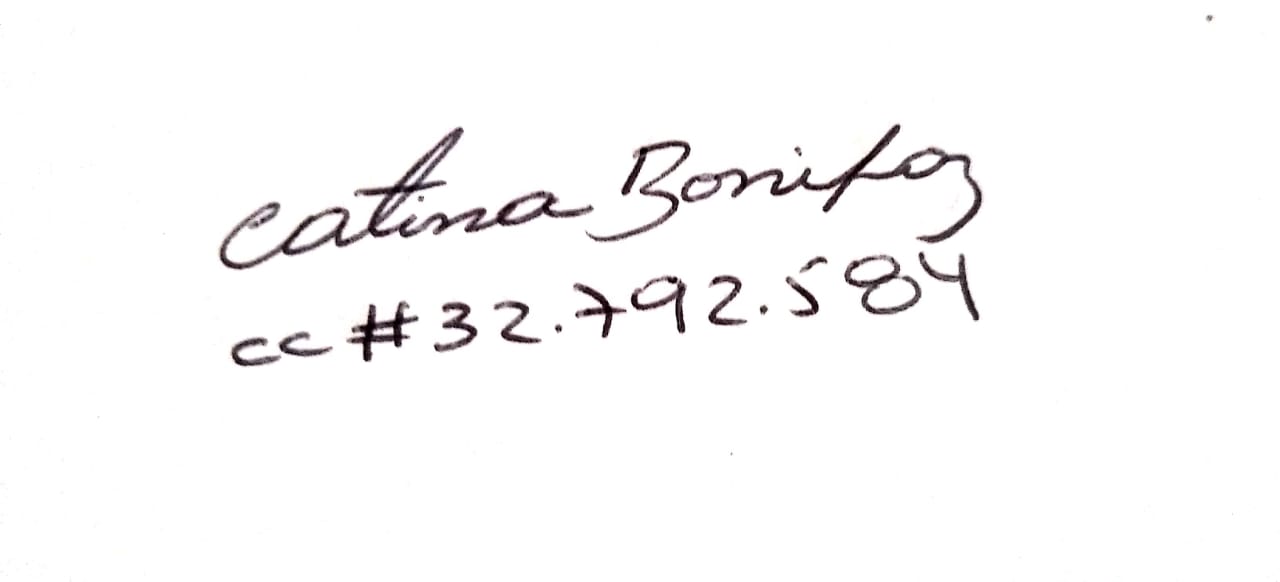 Catina Bonifaz
cc #32.792.584